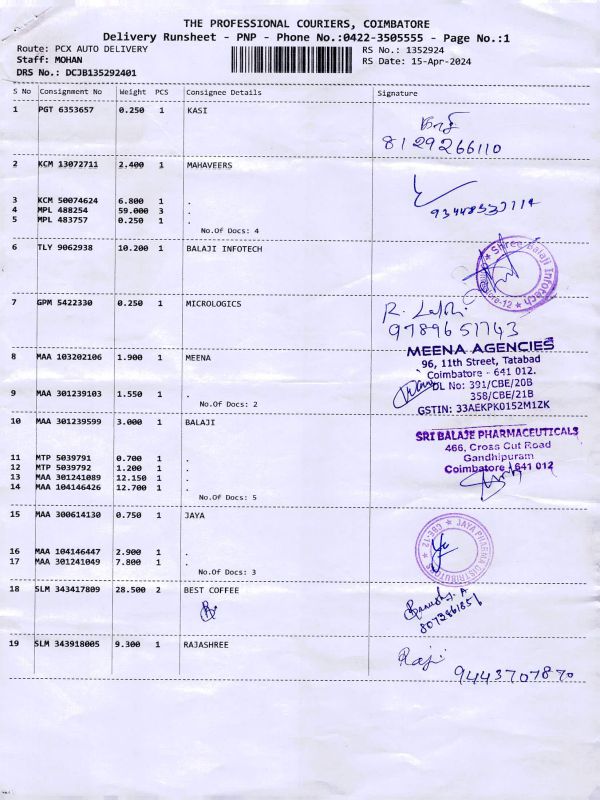 THE PROFESSIONAL COURIERS, COIMBATORE
Delivery Runsheet - PNP - Phone No.:0422-3505555 - Page No.:1
Route: PCX AUTO DELIVERY RS No.: 1352924
Staff: MOHAN RS Date: 15-Apr-2024
DRS No.: DCJB135292401
S No Consignment No Weight PCS Consignee Details Signature
1 PGT 6353657 0.250 1 KASI
8129266110
2 KCM 13072711 2.400 1 MAHAVEERS
3 KCM 50074624 6.800 1 .
4 MPL 488254 59.000 3 .
5 MPL 483757 0.250 1 .
No.Of Docs: 4
6 TLY 9062938 10.200 1 BALAJI INFOTECH
Shree Balaji Infotech
7 GPM 5422330 0.250 1 MICROLOGICS
9789651743
8 MAA 103202106 1.900 1 MEENA
MEENA AGENCIES
96, 11th Street, Tatabad
Coimbatore - 641 012.
DL No: 391/CBE/20B
358/CBE/21B
GSTIN: 33AEKPK0152M1ZK
9 MAA 301239103 1.550 1 .
No.Of Docs: 2
10 MAA 301239599 3.000 1 BALAJI
SRI BALAJE PHARMACEUTICALS
466, Cross Cut Road
Gandhipuram
Coimbatore - 641 012
11 MTP 5039791 0.700 1 .
12 MTP 5039792 1.200 1 .
13 MAA 301241089 12.150 1 .
14 MAA 104146426 12.700 1 .
No.Of Docs: 5
15 MAA 300614130 0.750 1 JAYA
JAYA PHARMA DISTRIBUTORS CBE-12
16 MAA 104146447 2.900 1 .
17 MAA 301241049 7.800 1 .
No.Of Docs: 3
18 SLM 343417809 28.500 2 BEST COFFEE
19 SLM 343918005 9.300 1 RAJASHREE
Raji
9443707870